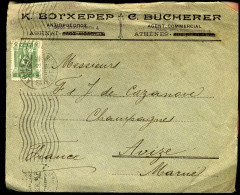 Κ. ΒΟΥΧΕΡΕΡ - C. BUCHERER
AGENT COMMERCIAL
ATHÈNES
Messieurs
F s J. de Cazanove
Champagnes
Avize
France
Marne